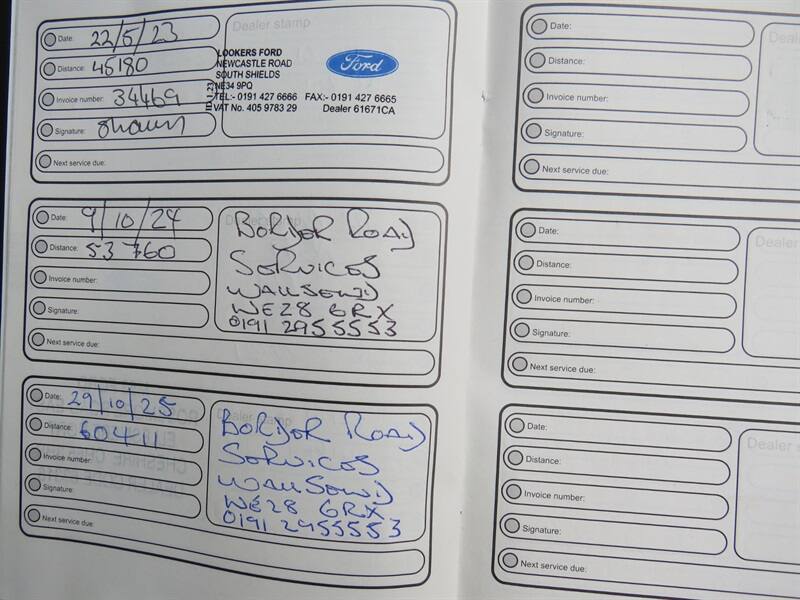 Dealer stamp
Date: 22/5/23
Distance: 45180
Invoice number: 34469
Signature: Shaun
Next service due:
LOOKERS FORD
NEWCASTLE ROAD
SOUTH SHIELDS
NE34 9PQ
TEL:- 0191 427 6666 FAX:- 0191 427 6665
VAT No. 405 9783 29 Dealer 61671CA
Ford
Date: 9/10/24
Distance: 53760
Invoice number:
Signature:
Next service due:
BORDER ROAD
SERVICES
WALLSEND
NE28 6RX
0191 2955553
Date: 29/10/25
Distance: 60411
Invoice number:
Signature:
Next service due:
Dealer stamp
BORDER ROAD
SERVICES
WALLSEND
NE28 6RX
0191 2955553
Date:
Distance:
Invoice number:
Signature:
Next service due:
Dealer
Date:
Distance:
Invoice number:
Signature:
Next service due:
Dealer
Date:
Distance:
Invoice number:
Signature:
Next service due:
Dealer